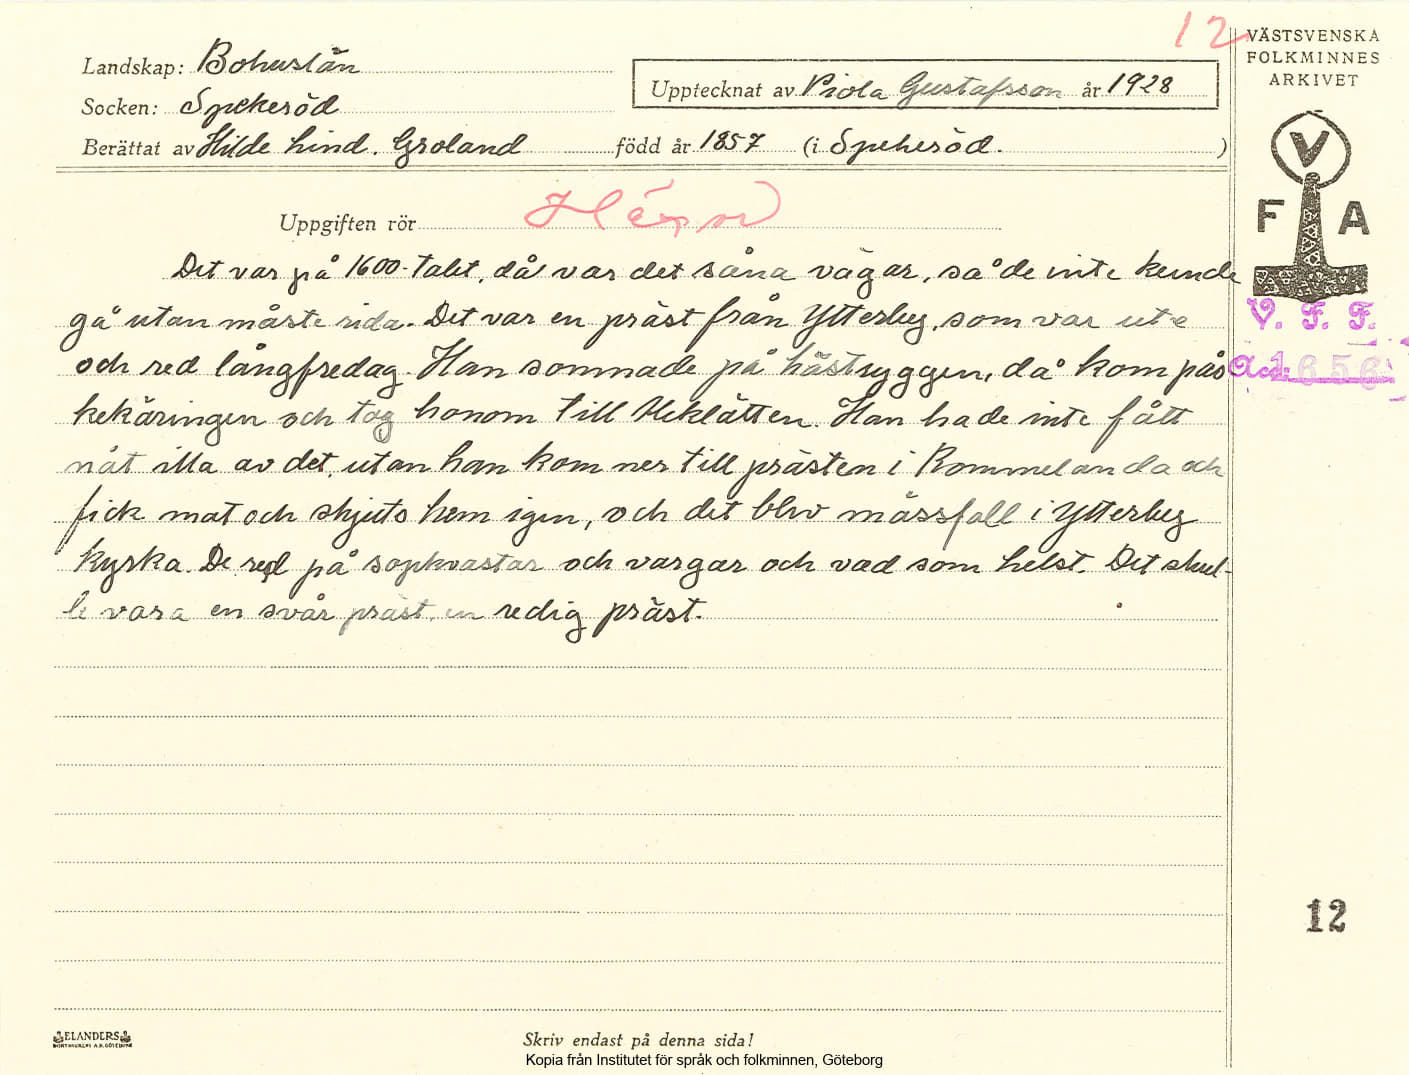 12
VÄSTSVENSKA
FOLKMINNES
ARKIVET
Landskap: Bohuslän
Socken: Spekeröd
Upptecknat av Viola Gustafsson år 1928
Berättat av Hilde Lind. Groland född år 1857 (i Spekeröd. )
V
F A
Uppgiften rör Häxor
Det var på 1600-talet, då var det såna vägar, så de inte kunde
gå utan måste rida. Det var en präst från Ytterby, som var ute
och red långfredag. Han somnade på hästryggen, då kom pås
kekäringen och tog honom till Heklätten. Han hade inte fått
nåt illa av det, utan han kom ner till prästen i Rommelanda och
fick mat och skjuts hem igen, och det blev mässfall i Ytterby
kyrka. De red på sopkvastar och vargar och vad som helst. Det skul-
le vara en svår präst, en redig präst.
V. F. F.
Acc. 1656
12
ELANDERS
Skriv endast på denna sida!
Kopia från Institutet för språk och folkminnen, Göteborg